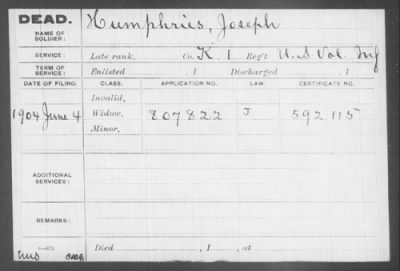 DEAD. Humphries, Joseph
NAME OF SOLDIER:
SERVICE: Late rank, Co. K 1 Reg't U.S Vol. Inf
TERM OF SERVICE: Enlisted , 1 Discharged , 1
DATE OF FILING. CLASS. APPLICATION NO. LAW. CERTIFICATE NO.
Invalid,
1904 June 4 Widow, 807822 J 592.115
Minor,
ADDITIONAL SERVICES:
REMARKS:
Died , 1 , at